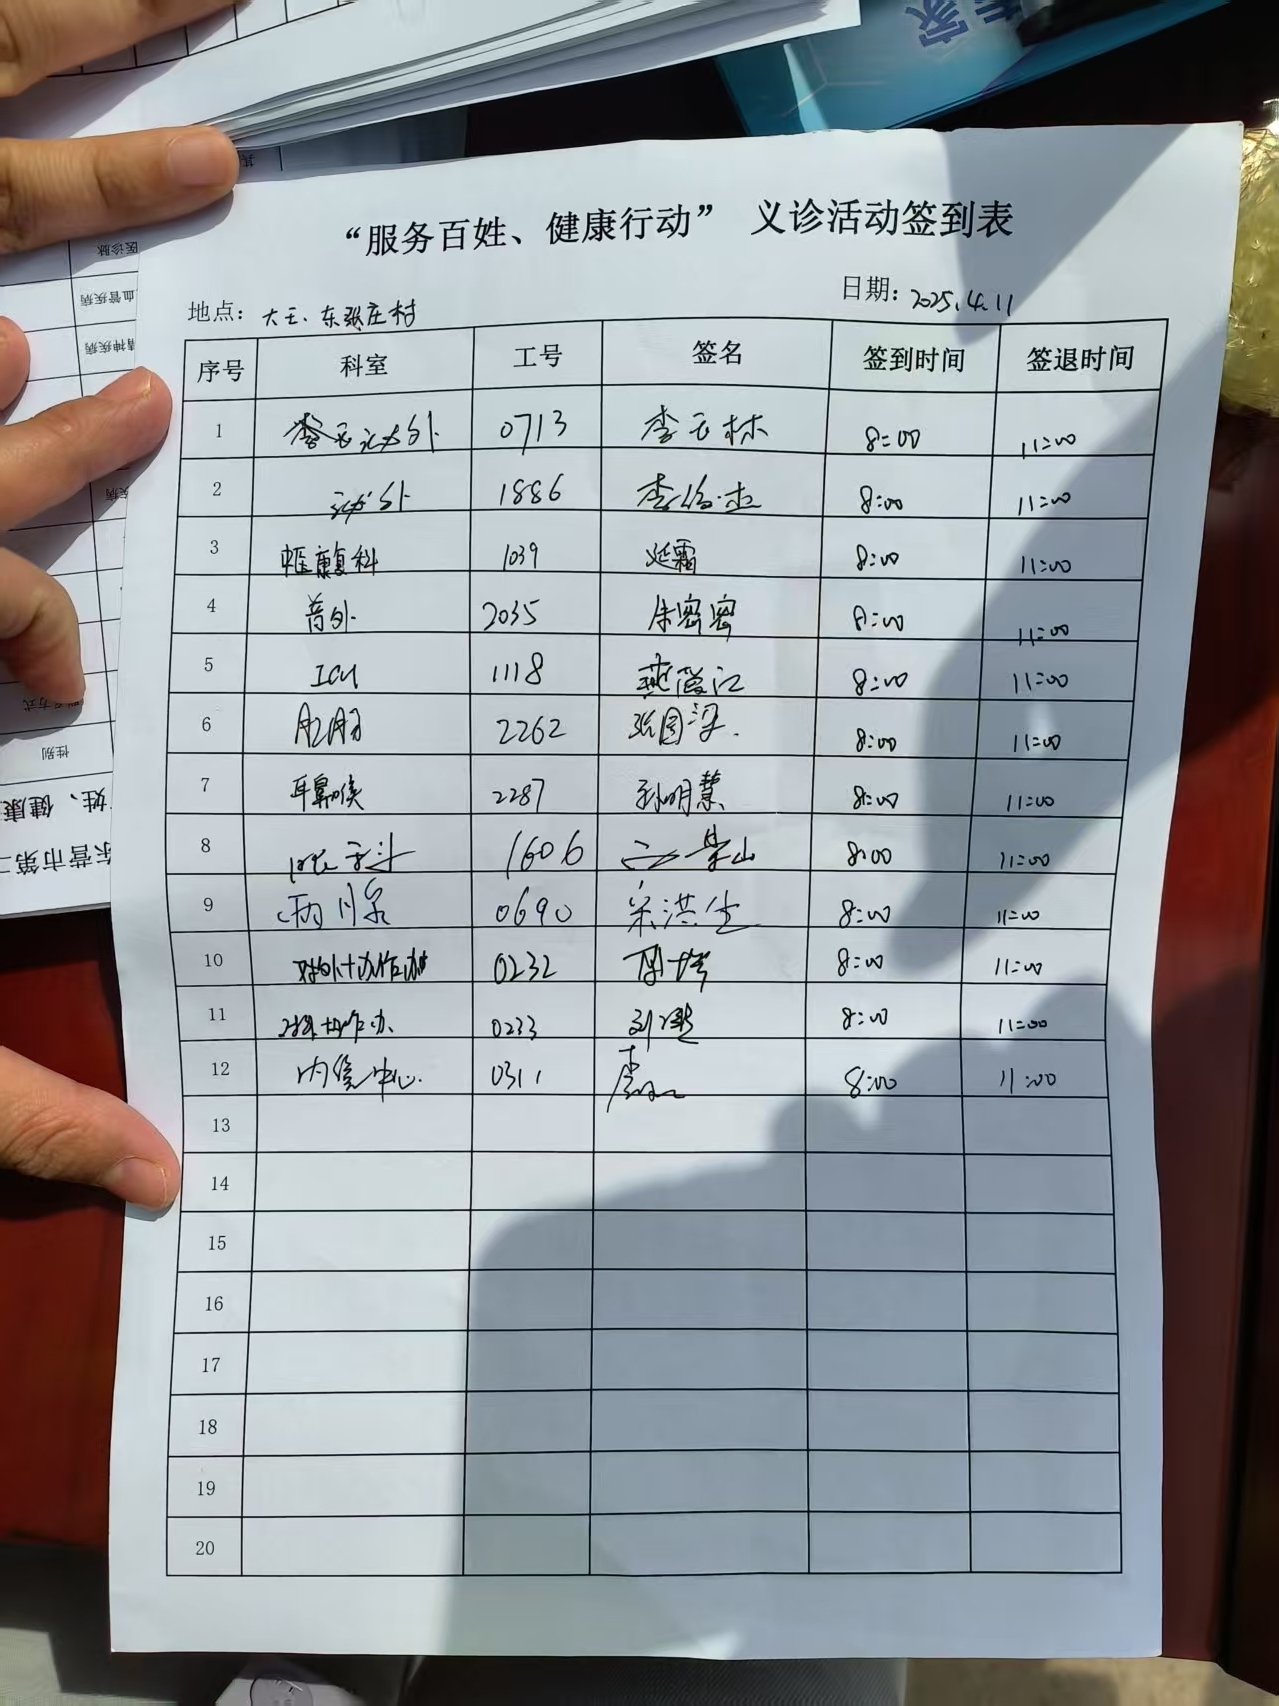 “服务百姓、健康行动” 义诊活动签到表
地点：大王、东张庄村 日期：2025.4.11
序号 科室 工号 签名 签到时间 签退时间
1 泌外 0713 李玉林 8:00 11:00
2 泌外 1886 李俊杰 8:00 11:00
3 中医康复科 1039 延霜 8:00 11:00
4 普外 2035 朱密密 8:00 11:00
5 ICU 1118 燕 江 8:00 11:00
6 肛肠 2262 张国梁 8:00 11:00
7 耳鼻喉 2287 孙明慧 8:00 11:00
8 1606 8:00 11:00
9 0690 宋洪生 8:00 11:00
10 对外协作办 0232 8:00 11:00
11 对外协作办 0233 刘 8:00 11:00
12 内镜中心 0311 李 8:00 11:00
13
14
15
16
17
18
19
20
医诊脉
血管疾病
精神疾病
疾病
方式
性别
姓、健康
东营市第二
家